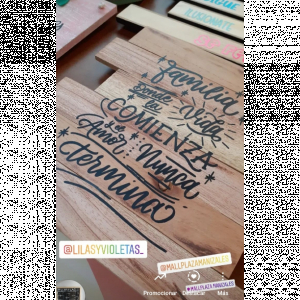 familia
Donde la Vida
COMIENZA
el Amor Nunca
termina
@LILASYVIOLETAS_
@MALLPLAZAMANIZALES
@MALLPLAZA MANIZALES
Promocionar
Destacar
Más